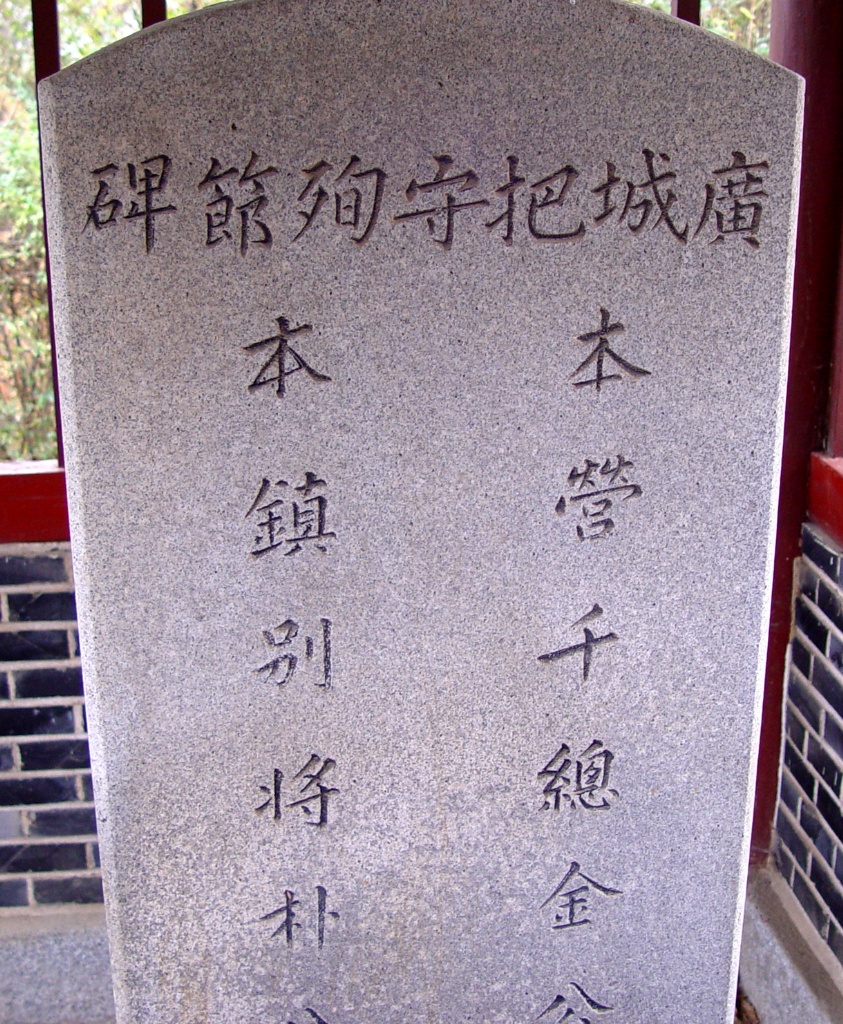 廣城把守殉節碑
本營千總金公
本鎮別將朴公